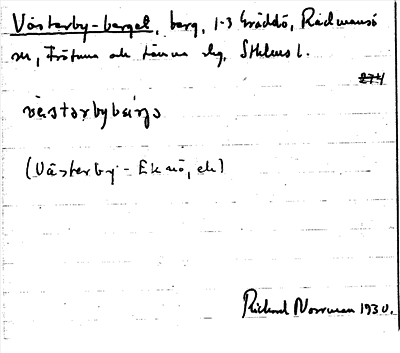 Västerby-berget, berg, 1-3 Gräddö, Rådmansö
sn, Frötuna och Länna skg, Sthlms l.
274
västərbybärjə
(Västerby - Eknö, ek)
Rickard Norrman 1930.